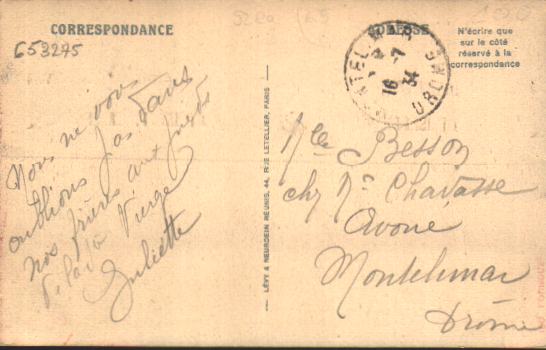 CORRESPONDANCE
653275
Nous ne vous
oublions pas dans
nos prières aux pieds
de la Vierge
Juliette
LÉVY & NEURDEIN RÉUNIS, 44, RUE LETELLIER, PARIS
ADRESSE
N'écrire que
sur le côté
réservé à la
correspondance
16 -7
34
DROME
Mlle Besson
chez Mr Chavasse
Avoué
Montelimar
Drôme